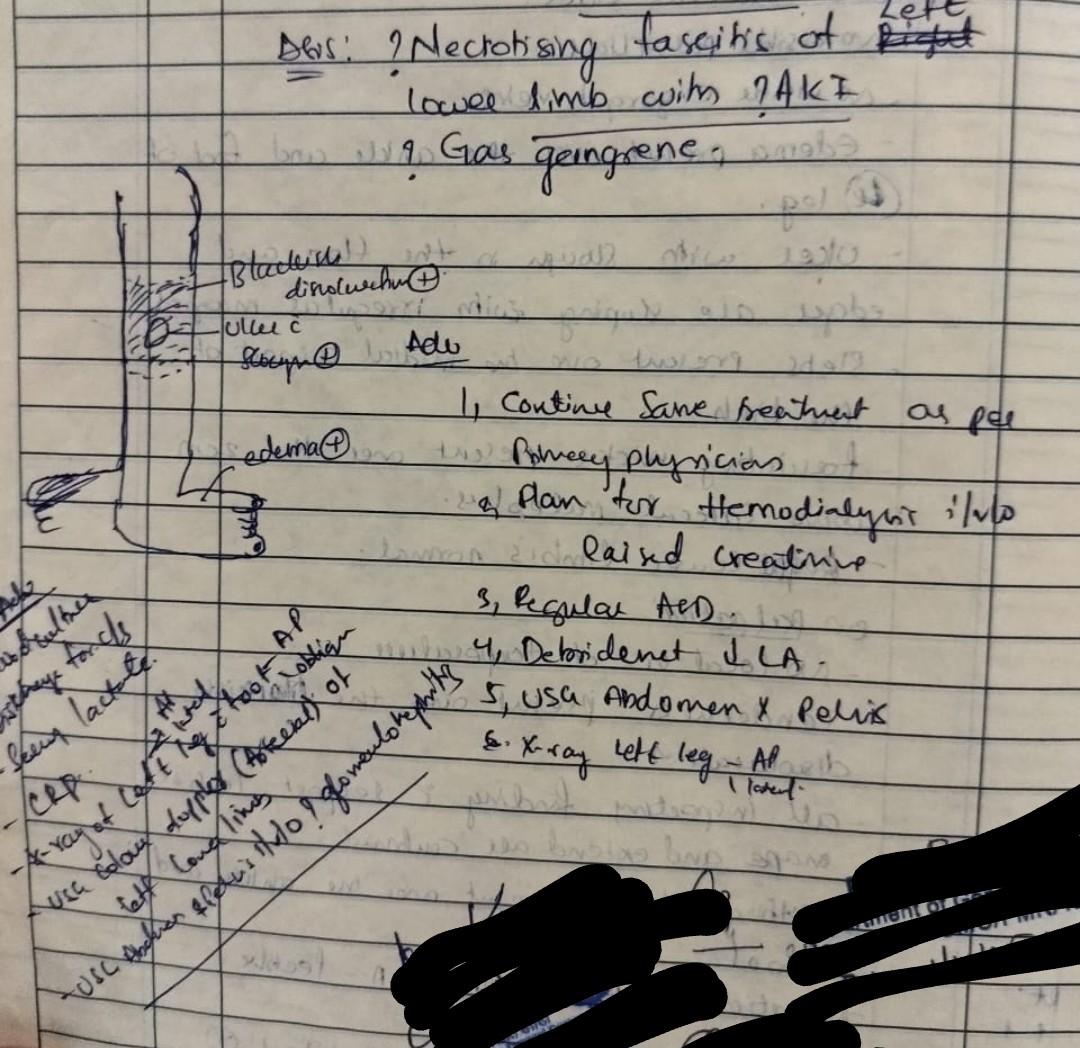 Left
Δsis: ? Necrotising fasciitis of Right
lower limb with ? AKI
? Gas geingrene.
Blackish
discoloration ⊕
ulcer c̄
slough ⊕
edema ⊕
Adv
1, Continue Same treatment as per
Primary physician
2, Plan for Hemodialysis i/v/o
Raised creatinine
3, Regular ASD.
4, Debridenet ↓ LA.
5, USG Abdomen & Pelvis
6. X-ray left leg - AP
lateral.
Adv
- Serum lactate
- CRP.
- X-ray of Left leg c̄ foot - AP
- USG colour doppler (Arterial) of
left lower limb
- USG Abdomen & Pelvis i/v/o ? glomerulonephritis